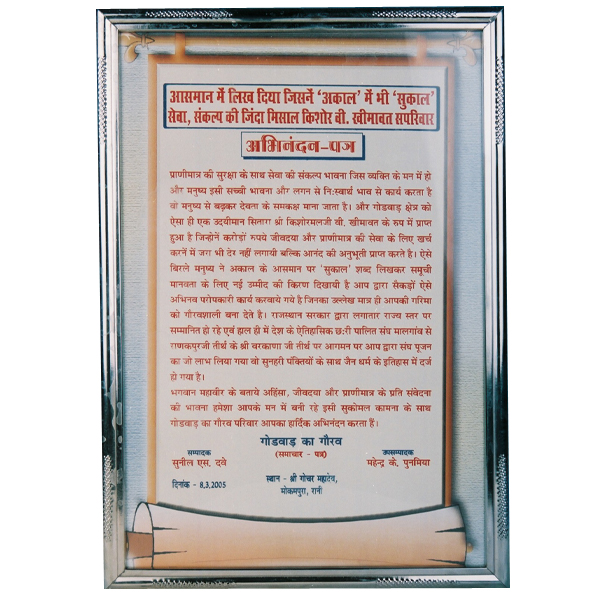 आसमान में लिख दिया जिसनें ‘अकाल’ में भी ‘सुकाल’
सेवा, संकल्प की जिंदा मिसाल किशोर वी. खीमावत सपरिवार
अभिनंदन-पत्र
प्राणीमात्र की सुरक्षा के साथ सेवा की संकल्प भावना जिस व्यक्ति के मन में हो
और मनुष्य इसी सच्ची भावना और लगन से नि:स्वार्थ भाव से कार्य करता है
वो मनुष्य से बढ़कर देवता के समकक्ष माना जाता है। और गोडवाड़ क्षेत्र को
ऐसा ही एक उदयीमान सितारा श्री किशोरमलजी वी. खीमावत के रुप में प्राप्त
हुआ है जिन्होनें करोडों रुपये जीवदया और प्राणीमात्र की सेवा के लिए खर्च
करनें में जरा भी टेर नहीं लगायी बल्कि आनंद की अनुभूती प्राप्त करते है। ऐसे
बिरले मनुष्य ने अकाल के आसमान पर ‘सुकाल’ शब्द लिखकर समूची
मानवता के लिए नई उम्मीद की किरण दिखायी है आप द्वारा सैकड़ों ऐसे
अभिनव परोपकारी कार्य करवाये गये है जिनका उल्लेख मात्र ही आपकी गरिमा
को गौरवशाली बना देते है। राजस्थान सरकार द्वारा लगातार राज्य स्तर पर
सम्मानित हो रहे एवं हाल ही में देश के ऐतिहासिक छ:री पालित संघ मालगांव से
राणकपुरजी तीर्थ के श्री वरकाणा जी तीर्थ पर आगमन पर आप द्वारा संघ पूजन
का जो लाभ लिया गया वो सुनहरी पंक्तियों के साथ जैन धर्म के इतिहास में दर्ज
हो गया है।
भगवान महावीर के बताये अहिंसा, जीवदया और प्राणीमात्र के प्रति संवेदना
की भावना हमेशा आपके मन में बनी रहे इसी सुकोमल कामना के साथ
गोडवाड़ का गौरव परिवार आपका हार्दिक अभिनंदन करता हैं।
गोडवाड़ का गौरव
(समाचार - पत्र)
सम्पादक
सुनील एस. दवे
उपसम्पादक
महेन्द्र के. पुनमिया
स्थान - श्री गोचर महादेव,
मोकमपुरा, रानी
दिनांक - 8,3,2005